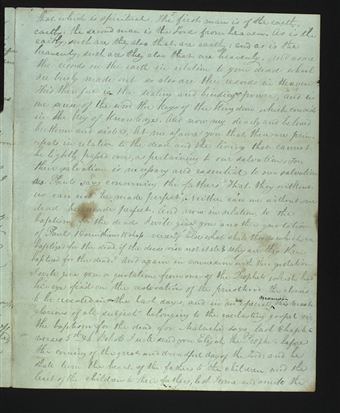 that which is spiritual. The first man is of the earth,
earthy; the second man is the Lord from heaven. As is the
earthy, such are they also that are earthy; and as is the
heavenly, such are they also that are heavenly. And as are
the records on the earth in relation to your dead, which
are truly made out so also are the records in Heaven.
This therefore is the sealing and binding power, and in
one sense of the word the Keys of the Kingdom which consists
in the Key of Knowledge. And now my dearly and beloved
brethren and sisters, let me assure you that these are prin-
ciples in relation to the dead and the living that cannot
be lightly passed over, as pertaining to our salvation. For
their salvation is necessary and essential to our salvation
as Paul says concerning the fathers "That they without
us can not be made perfect"; neither can we without our
dead be made perfect. And now in relation to the
baptism for the dead I will give you another quotation
of Paul 1 Corinthians 15 chap verse 29 Else what shall they do which are
baptized for the dead if the dead rise not at all why are they then
baptized for the dead? And again in connexion with this quotation
I will give you a quotation from one of the Prophets, which had
his eye fixed on the restoration of the priesthood the glories
to be revealed in the last days, and in an especial manner this most
glorious of all subjects belonging to the everlasting gospel viz
the baptism for the dead for Malachi says, last chapter
verses 5th &amp; 6th Behold I will send you Elijah the Prophet before
the coming of the great and dreadful day of the Lord; and he
shall turn the heart of the fathers to the children, and the
heart of the children to their fathers, lest I come and smite the